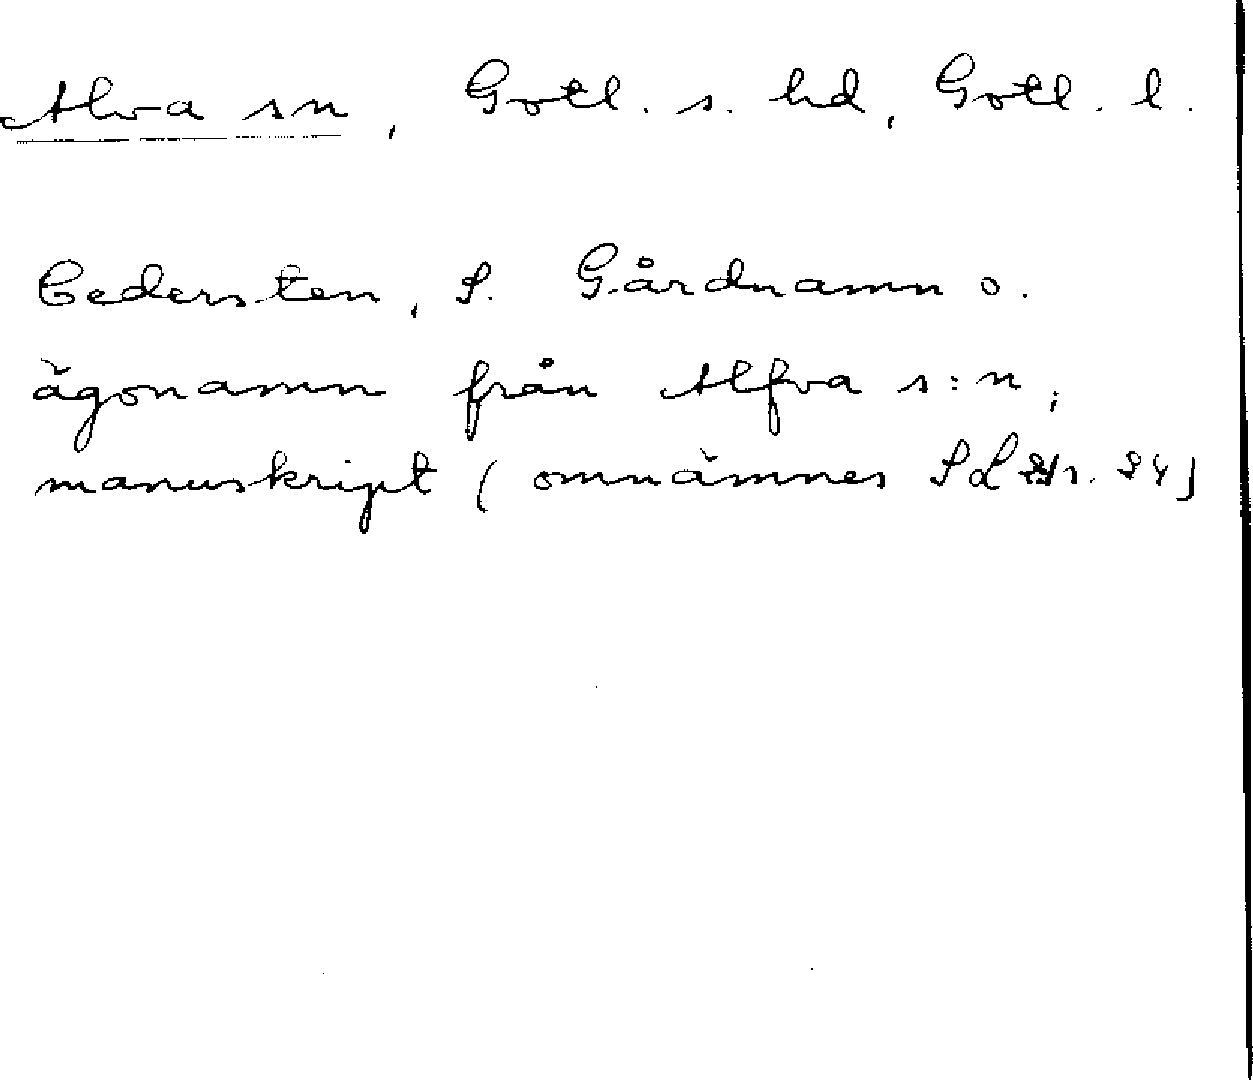 Alva sn, Gotl. s. hd, Gotl. l.
Cedersten, S. Gårdnamn o.
ägonamn från Alfva s:n,
manuskript (omnämnes